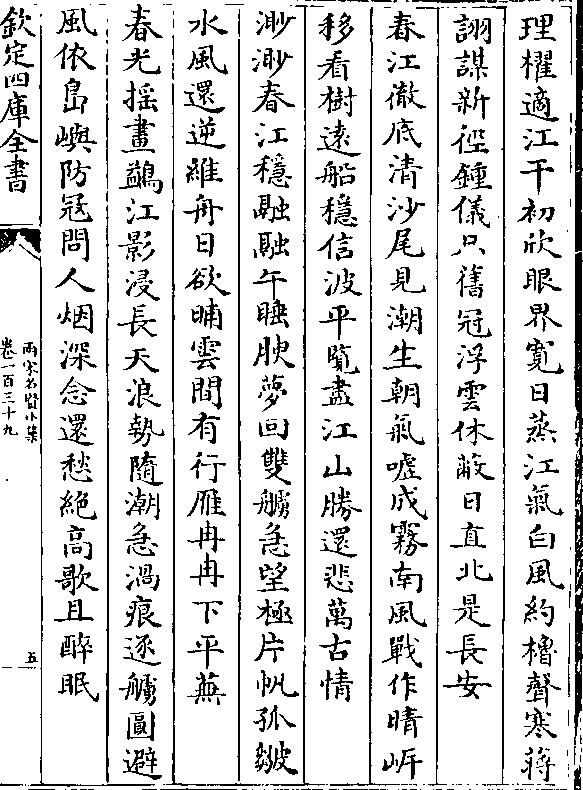 理櫂適江干初欣眼界寛日蒸江氣白風約櫓聲寒蔣
詡謀新徑鍾儀只舊冠浮雲休蔽日直北是長安
春江徹底清沙尾見潮生朝氣嘘成霧南風戰作晴岍
移看樹逺船穩信波平覧盡江山勝還悲萬古情
渺渺春江穩融融午睡腴夢回雙艣急望極片帆孤皴
水風還逆維舟日欲晡雲間有行雁冉冉下平蕪
春光揺畫鷁江影浸長天浪勢隨潮急渦痕逐艣圓避
風依島嶼防冦問人烟深念還愁絶高歌且醉眠
欽定四庫全書
兩宋名賢小集
卷一百三十九
五